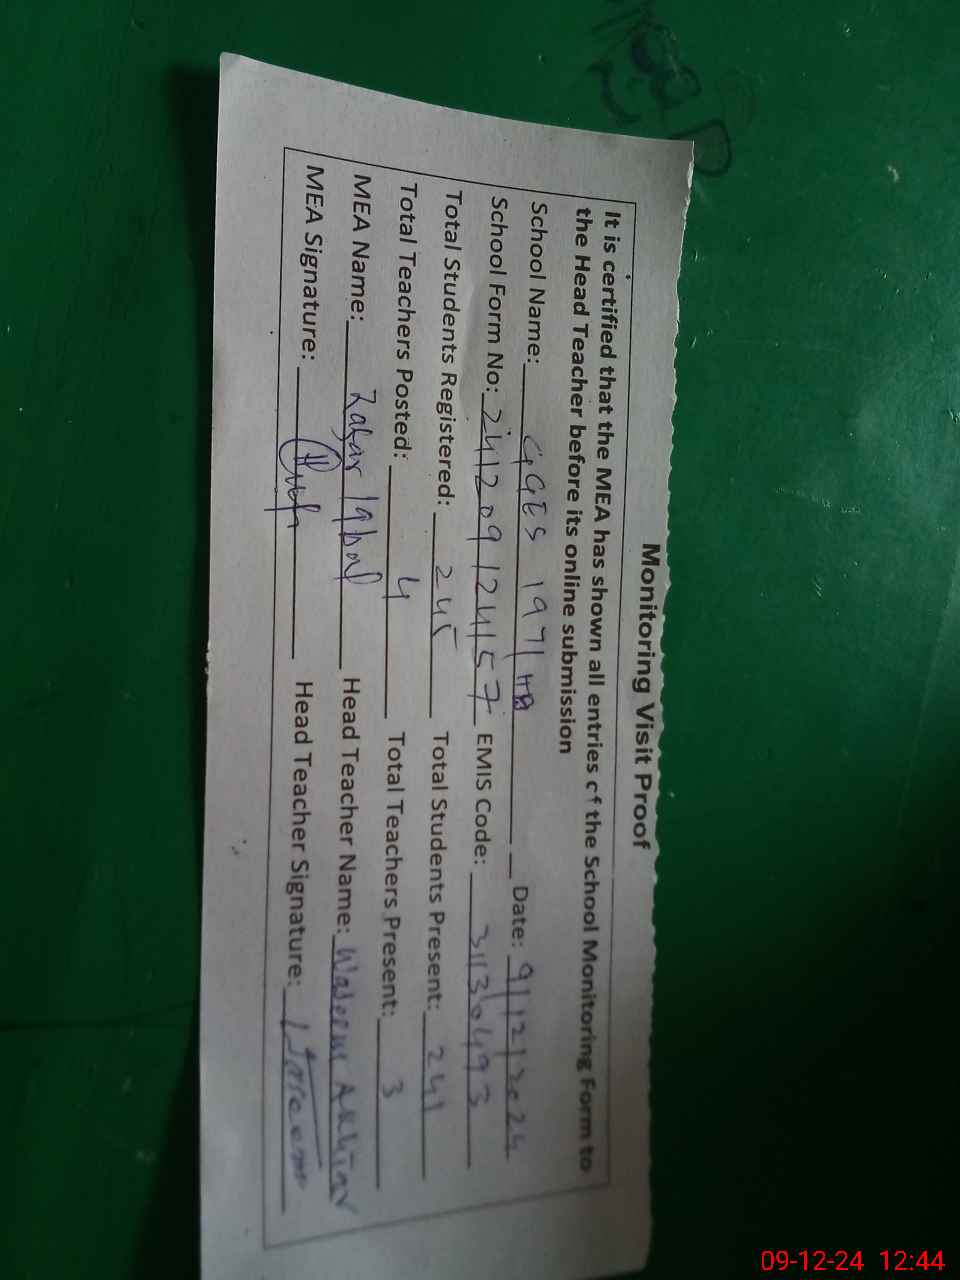 Monitoring Visit Proof
It is certified that the MEA has shown all entries of the School Monitoring Form to
the Head Teacher before its online submission
School Name: GGES 197/HB Date: 9/12/2024
School Form No: 241209124157 EMIS Code: 31130493
Total Students Registered: 245 Total Students Present: 241
Total Teachers Posted: 4 Total Teachers Present: 3
MEA Name: Zafar Iqbal Head Teacher Name: Waseem Akhtar
MEA Signature: Head Teacher Signature: Waseem
09-12-24 12:44